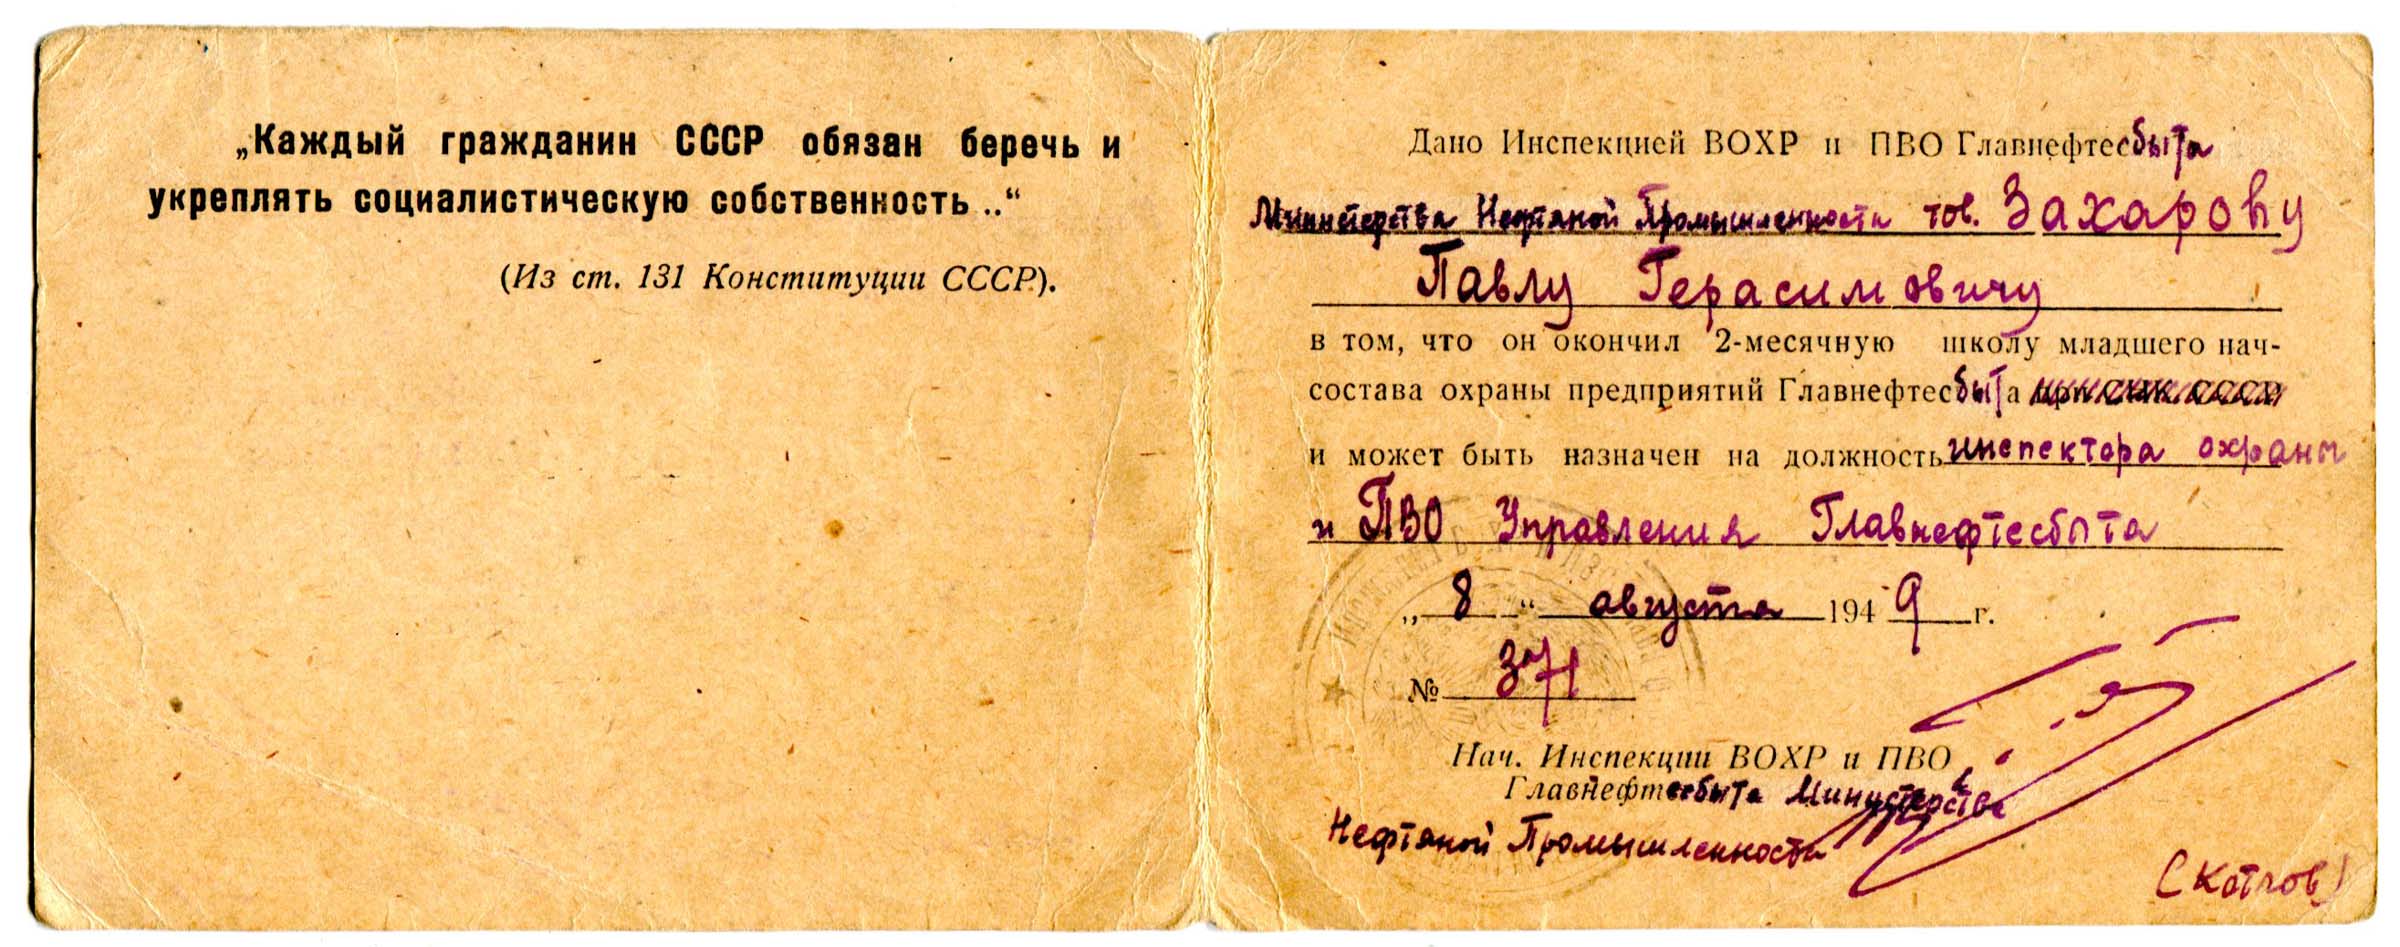 „Каждый гражданин СССР обязан беречь и
укреплять социалистическую собственность..“
(Из ст. 131 Конституции СССР).
Дано Инспекцией ВОХР и ПВО Главнефтесбыта
Министерства Нефтяной Промышленности тов. Захарову
Павлу Герасимовичу
в том, что он окончил 2-месячную школу младшего нач-
состава охраны предприятий Главнефтесбыта при СНК СССР
и может быть назначен на должность инспектора охраны
и ПВО Управления Главнефтесбыта
„ 8 “ августа 1949 г.
№ 371
Нач. Инспекции ВОХР и ПВО
Главнефтесбыта Министерства
Нефтяной Промышленности
(Котлов)